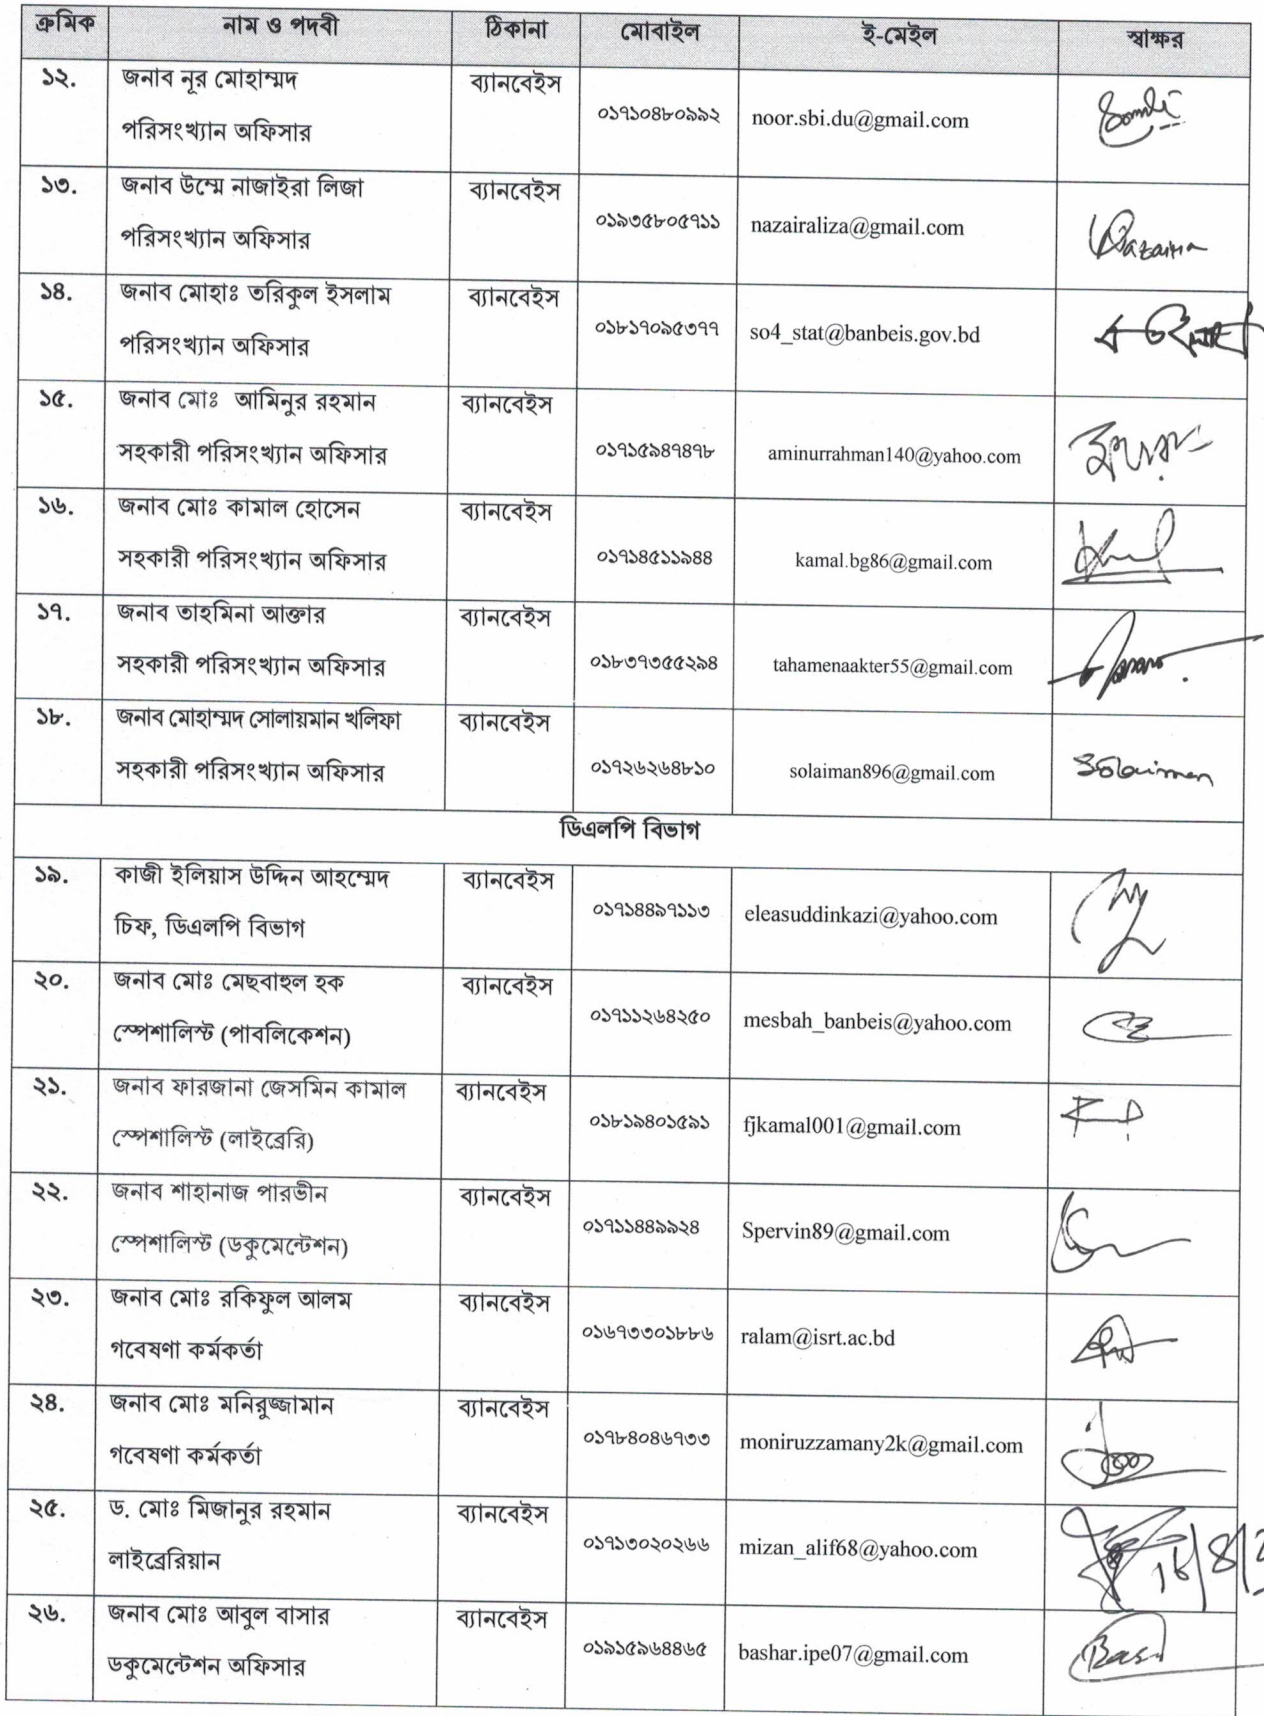 ক্রমিক নাম ও পদবী ঠিকানা মোবাইল ই-মেইল স্বাক্ষর
১২. জনাব নূর মোহাম্মদ ব্যানবেইস
পরিসংখ্যান অফিসার ০১৭১০৪৮০৯৯২ noor.sbi.du@gmail.com
১৩. জনাব উম্মে নাজাইরা লিজা ব্যানবেইস
পরিসংখ্যান অফিসার ০১৯৩৫৮০৫৭১১ nazairaliza@gmail.com Nazaira
১৪. জনাব মোহাঃ তরিকুল ইসলাম ব্যানবেইস
পরিসংখ্যান অফিসার ০১৮১৭০৯৫৩৭৭ so4_stat@banbeis.gov.bd
১৫. জনাব মোঃ আমিনুর রহমান ব্যানবেইস
সহকারী পরিসংখ্যান অফিসার ০১৭১৫৯৪৭৪৭৮ aminurrahman140@yahoo.com
১৬. জনাব মোঃ কামাল হোসেন ব্যানবেইস
সহকারী পরিসংখ্যান অফিসার ০১৭১৪৫১১৯৪৪ kamal.bg86@gmail.com
১৭. জনাব তাহমিনা আক্তার ব্যানবেইস
সহকারী পরিসংখ্যান অফিসার ০১৮৩৭৩৫৫২৯৪ tahamenaakter55@gmail.com
১৮. জনাব মোহাম্মদ সোলায়মান খলিফা ব্যানবেইস
সহকারী পরিসংখ্যান অফিসার ০১৭২৬২৬৪৮১০ solaiman896@gmail.com Solaiman
ডিএলপি বিভাগ
১৯. কাজী ইলিয়াস উদ্দিন আহম্মেদ ব্যানবেইস
চিফ, ডিএলপি বিভাগ ০১৭১৪৪৯৭১১৩ eleasuddinkazi@yahoo.com
২০. জনাব মোঃ মেছবাহুল হক ব্যানবেইস
স্পেশালিস্ট (পাবলিকেশন) ০১৭১১২৬৪২৫০ mesbah_banbeis@yahoo.com
২১. জনাব ফারজানা জেসমিন কামাল ব্যানবেইস
স্পেশালিস্ট (লাইব্রেরি) ০১৮১৯৪০১৫৯১ fjkamal001@gmail.com
২২. জনাব শাহানাজ পারভীন ব্যানবেইস
স্পেশালিস্ট (ডকুমেন্টেশন) ০১৭১১৪৪৯৯২৪ Spervin89@gmail.com
২৩. জনাব মোঃ রকিফুল আলম ব্যানবেইস
গবেষণা কর্মকর্তা ০১৬৭৩৩০১৮৮৬ ralam@isrt.ac.bd
২৪. জনাব মোঃ মনিরুজ্জামান ব্যানবেইস
গবেষণা কর্মকর্তা ০১৭৮৪০৪৬৭৩৩ moniruzzamany2k@gmail.com
২৫. ড. মোঃ মিজানুর রহমান ব্যানবেইস
লাইব্রেরিয়ান ০১৭১৩০২০২৬৬ mizan_alif68@yahoo.com
২৬. জনাব মোঃ আবুল বাসার ব্যানবেইস
ডকুমেন্টেশন অফিসার ০১৯১৫৯৬৪৪৬৫ bashar.ipe07@gmail.com